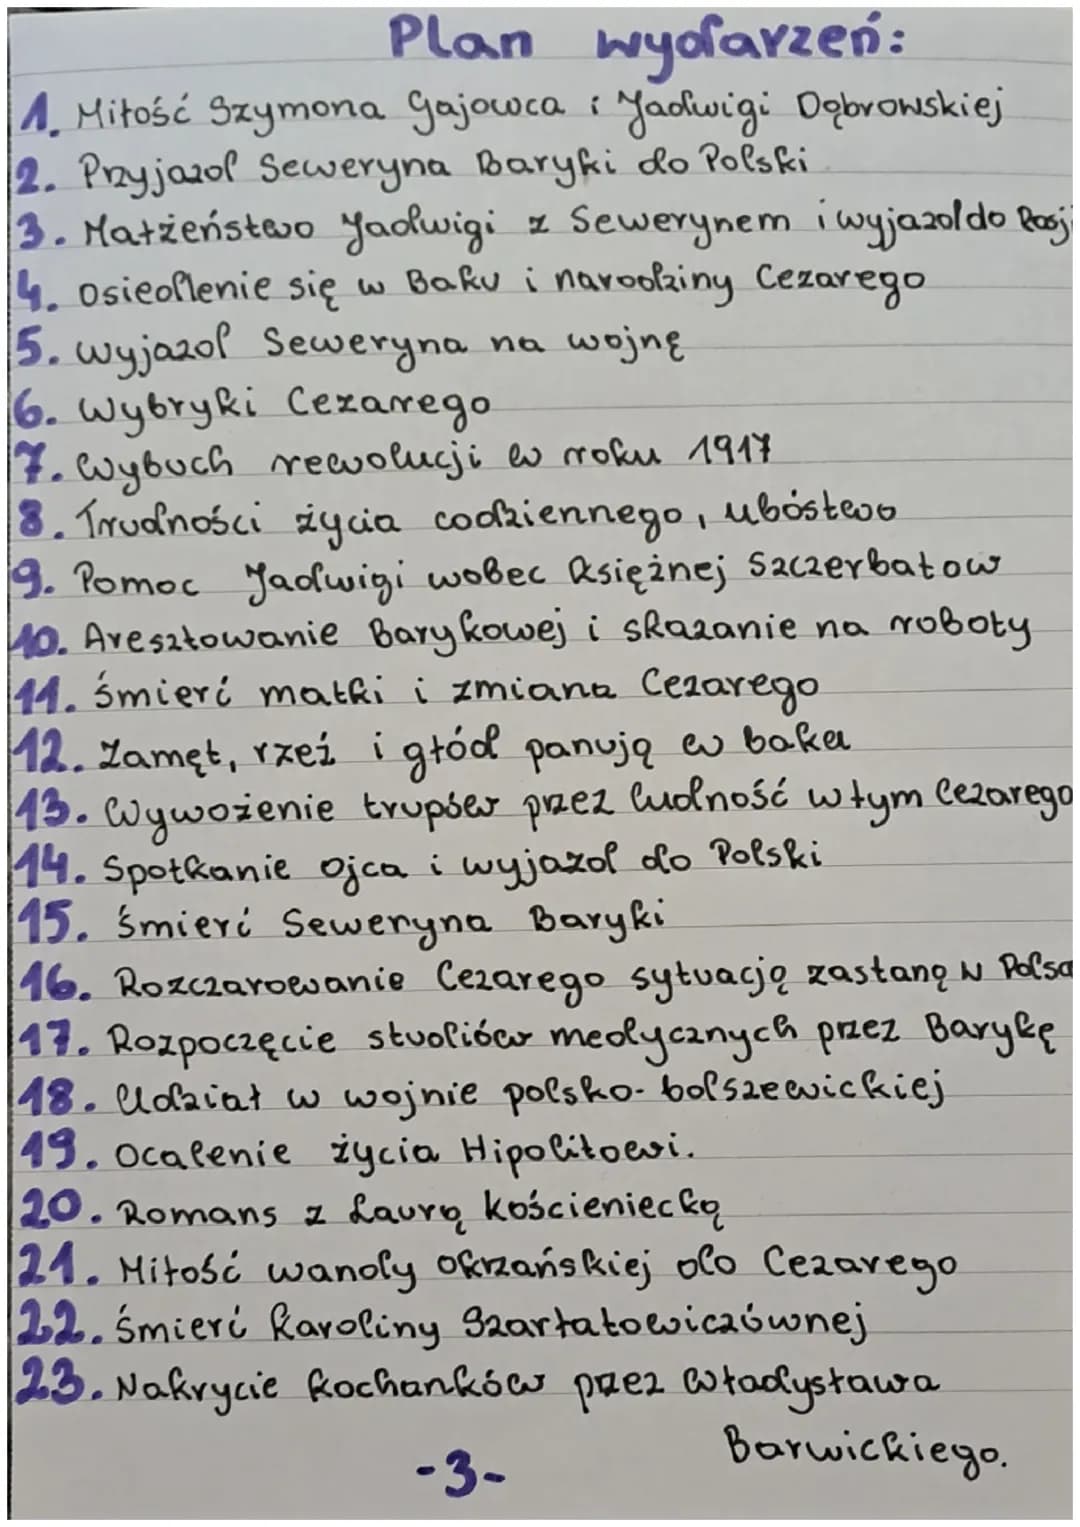 Plan wydarzeń:
1. Miłość Szymona Gajowca i Jadwigi Dąbrowskiej
2. Przyjazd Seweryna Baryki do Polski
3. Małżeństwo Jadwigi z Sewerynem i wyjazd do Rosji
4. Osiedlenie się w Baku i narodziny Cezarego
5. Wyjazd Seweryna na wojnę
6. Wybryki Cezarego
7. Wybuch rewolucji w roku 1917
8. Trudności życia codziennego, ubóstwo
9. Pomoc Jadwigi wobec Księżnej Szczerbatow
10. Aresztowanie Barykowej i skazanie na roboty
11. Śmierć matki i zmiana Cezarego
12. Zamęt, rzeź i głód panują w baku
13. Wywożenie trupów przez ludność w tym Cezarego
14. Spotkanie ojca i wyjazd do Polski
15. Śmierć Seweryna Baryki
16. Rozczarowanie Cezarego sytuacją zastaną w Polsce
17. Rozpoczęcie studiów medycznych przez Barykę
18. Udział w wojnie polsko-bolszewickiej
19. Ocalenie życia Hipolitowi.
20. Romans z Laurą Kościeniecką
21. Miłość wandy okrzańskiej do Cezarego
22. Śmierć Karoliny Szarłatowiczównej
23. Nakrycie kochanków przez Władysława
Barwickiego.
-3-